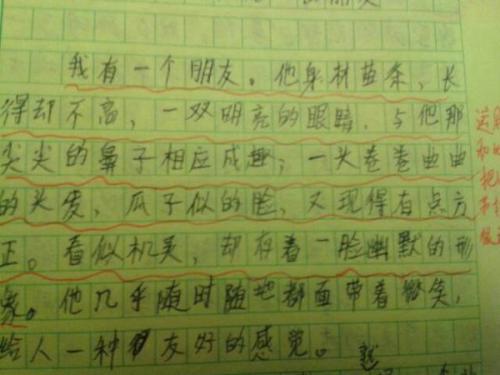 我有一个朋友。他身材苗条，长
得却不高，一双明亮的眼睛，与他那
尖尖的鼻子相应成趣；一头卷卷曲曲
的头发，瓜子似的脸，又现得有点方
正。看似机灵，却存着一脸幽默的形
象。他几乎随时随地都面带着微笑，
给人一种友好的感觉。就